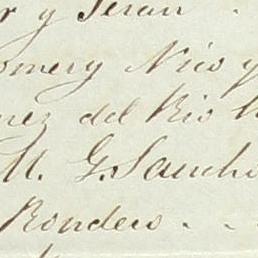 r y Teran
omery Nico y
nez del Rio
M. G. Sancho
Rondero . .